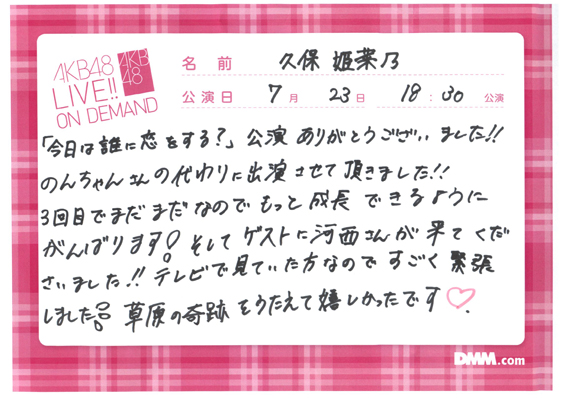 AKB48
LIVE!!
ON DEMAND
AKB
48
名前 久保 姫菜乃
公演日 7月 23日 18:30 公演
「今日は誰に恋をする?」公演 ありがとうございました!!
のんちゃんさんの代わりに出演させて頂きました!!
3回目でまだまだなのでもっと成長できるように
がんばります! そしてゲストに河西さんが来てくだ
さいました!! テレビで見ていた方なのですごく緊張
しました!! 草原の奇跡をうたえて嬉しかったです♡.
DMM.com